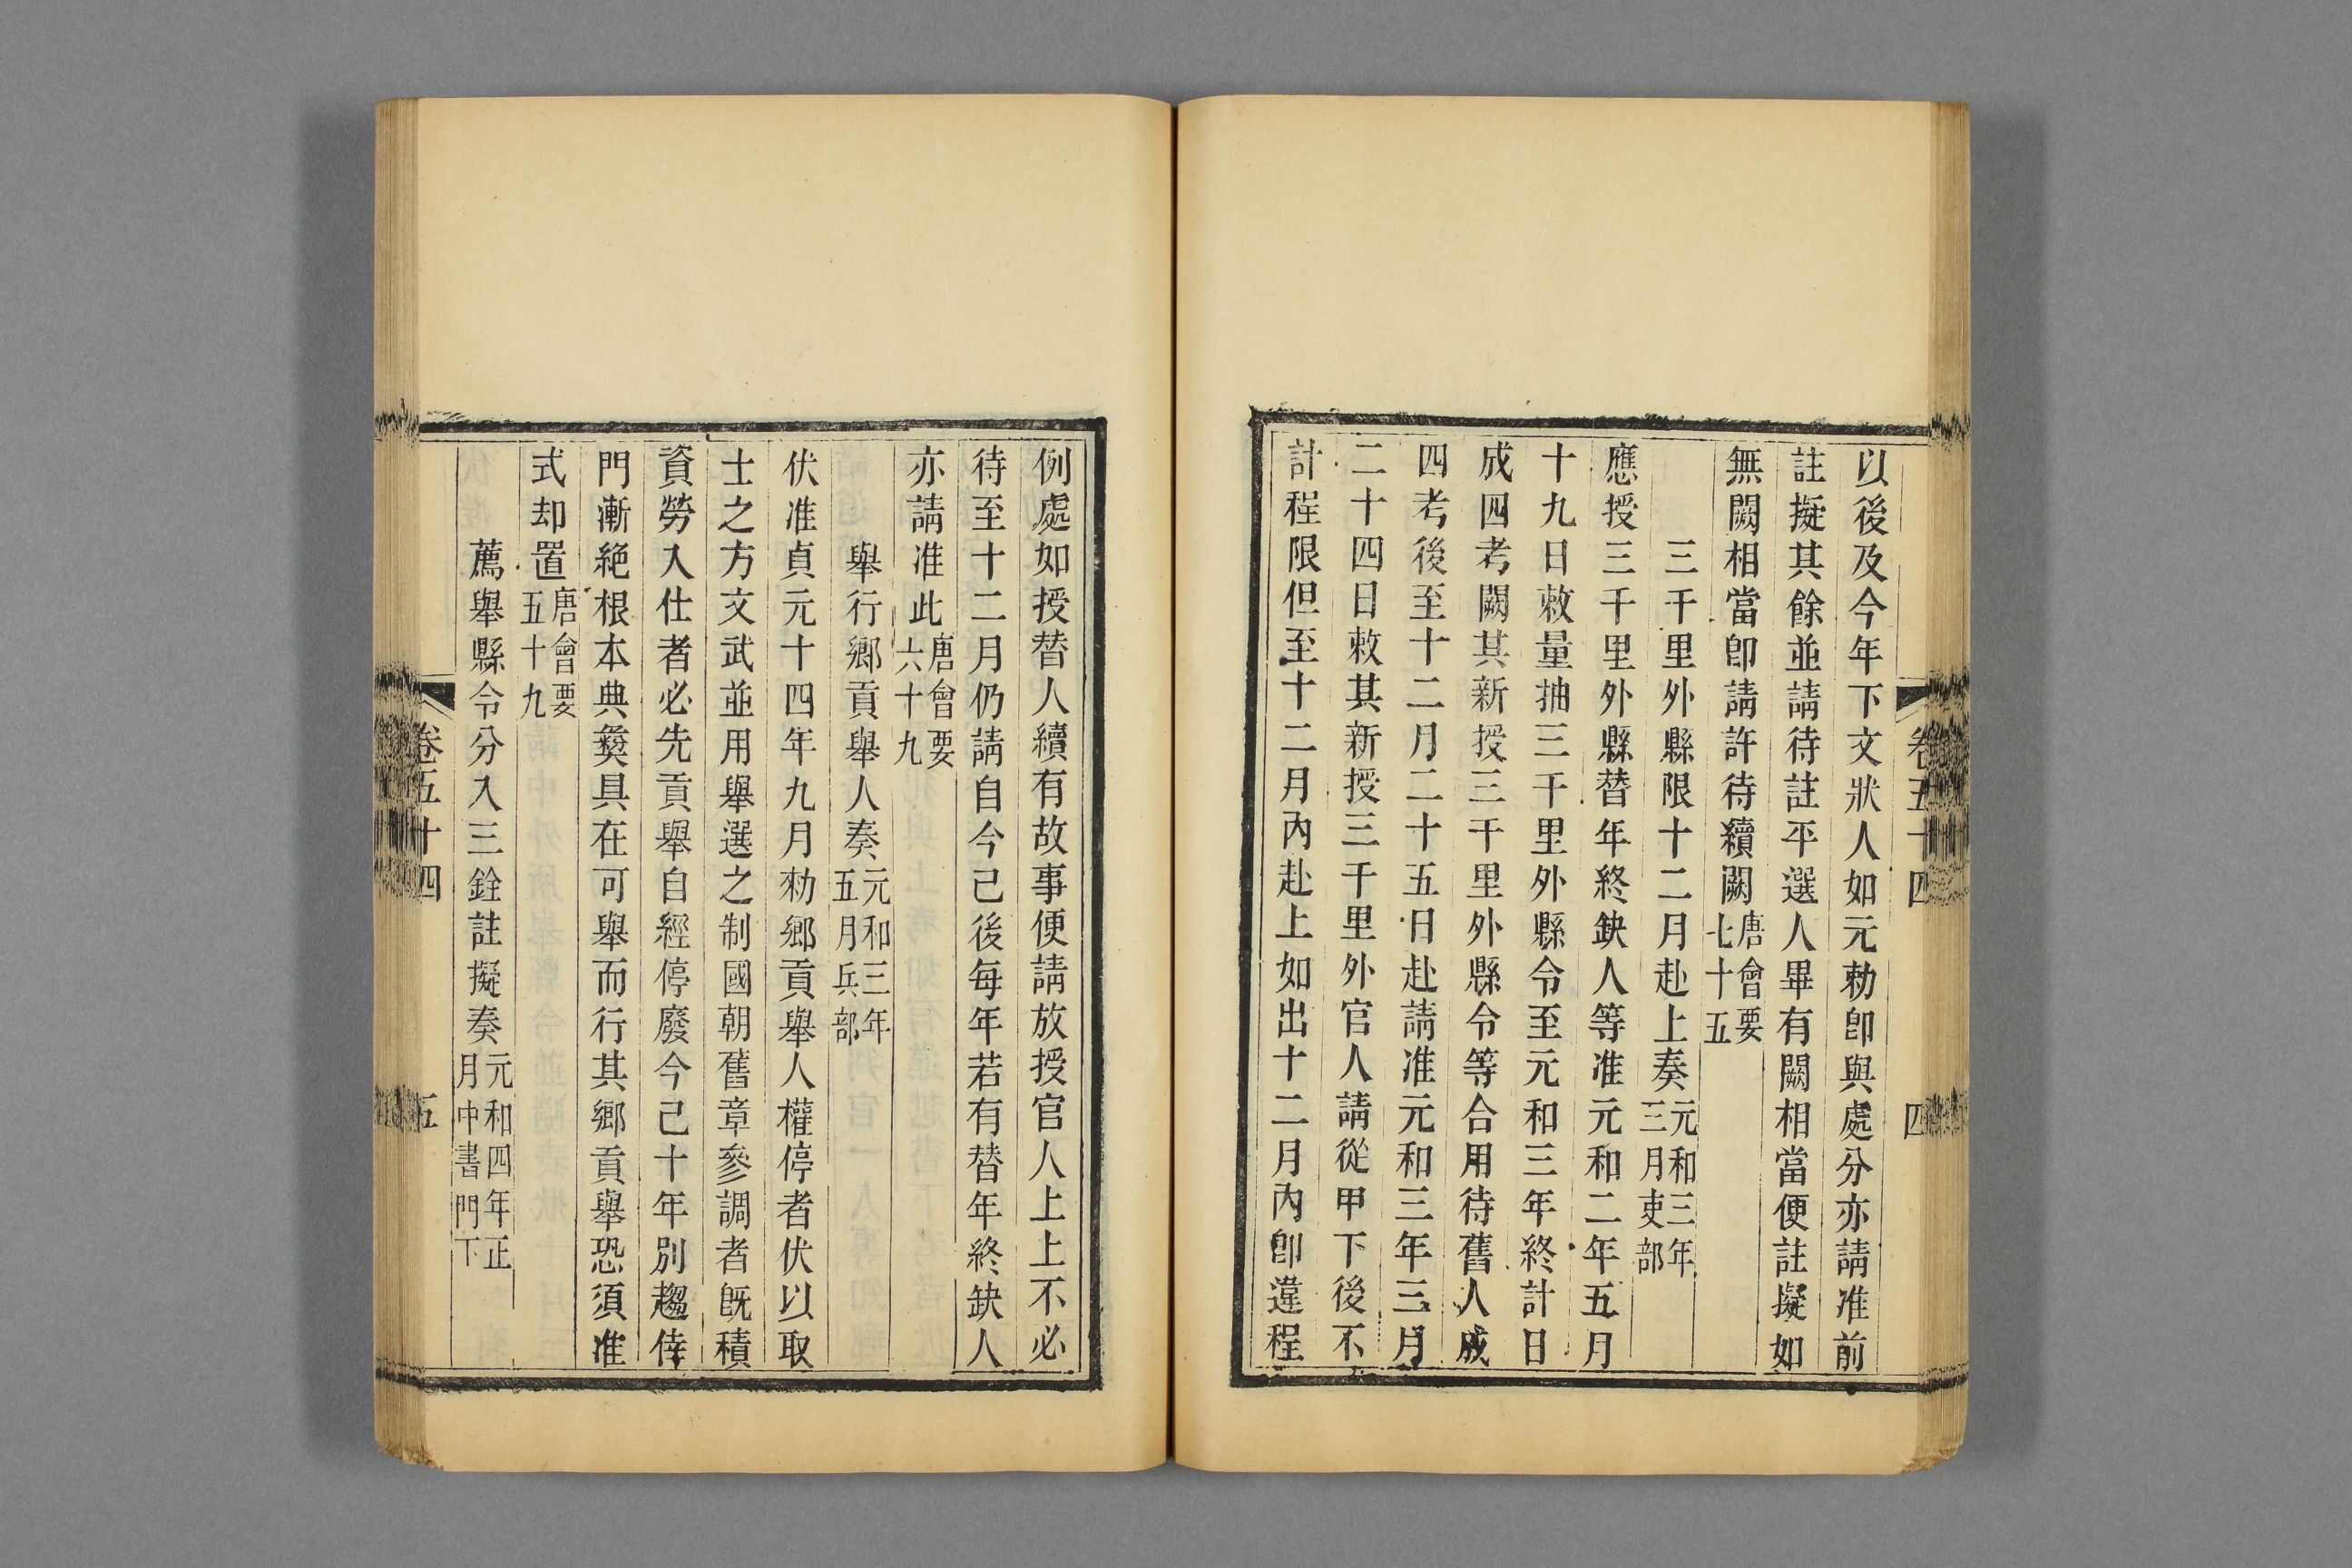 以後及今年下文狀人如元勅卽與處分亦請准前
註擬其餘並請待註平選人畢有闕相當便註擬如
無闕相當卽請許待續闕唐會要七十五
三千里外縣限十二月赴上奏元和三年三月吏部
應授三千里外縣替年終缺人等准元和二年五月
十九日敕量抽三千里外縣令至元和三年終計日
成四考闕其新授三千里外縣令等合用待舊人成
四考後至十二月二十五日赴請准元和三年三月
二十四日敕其新授三千里外官人請從甲下後不
計程限但至十二月內赴上如出十二月內卽違程
卷五十四
四
例處如授替人續有故事便請放授官人上上不必
待至十二月仍請自今已後每年若有替年終缺人
亦請准此唐會要六十九
舉行鄉貢舉人奏元和三年五月兵部
伏准貞元十四年九月勅鄉貢舉人權停者伏以取
士之方文武並用舉選之制國朝舊章參調者旣積
資勞入仕者必先貢舉自經停廢今已十年別趨倖
門漸絕根本典彝具在可舉而行其鄉貢舉恐須准
式却置唐會要五十九
薦舉縣令分入三銓註擬奏元和四年正月中書門下
卷五十四
五